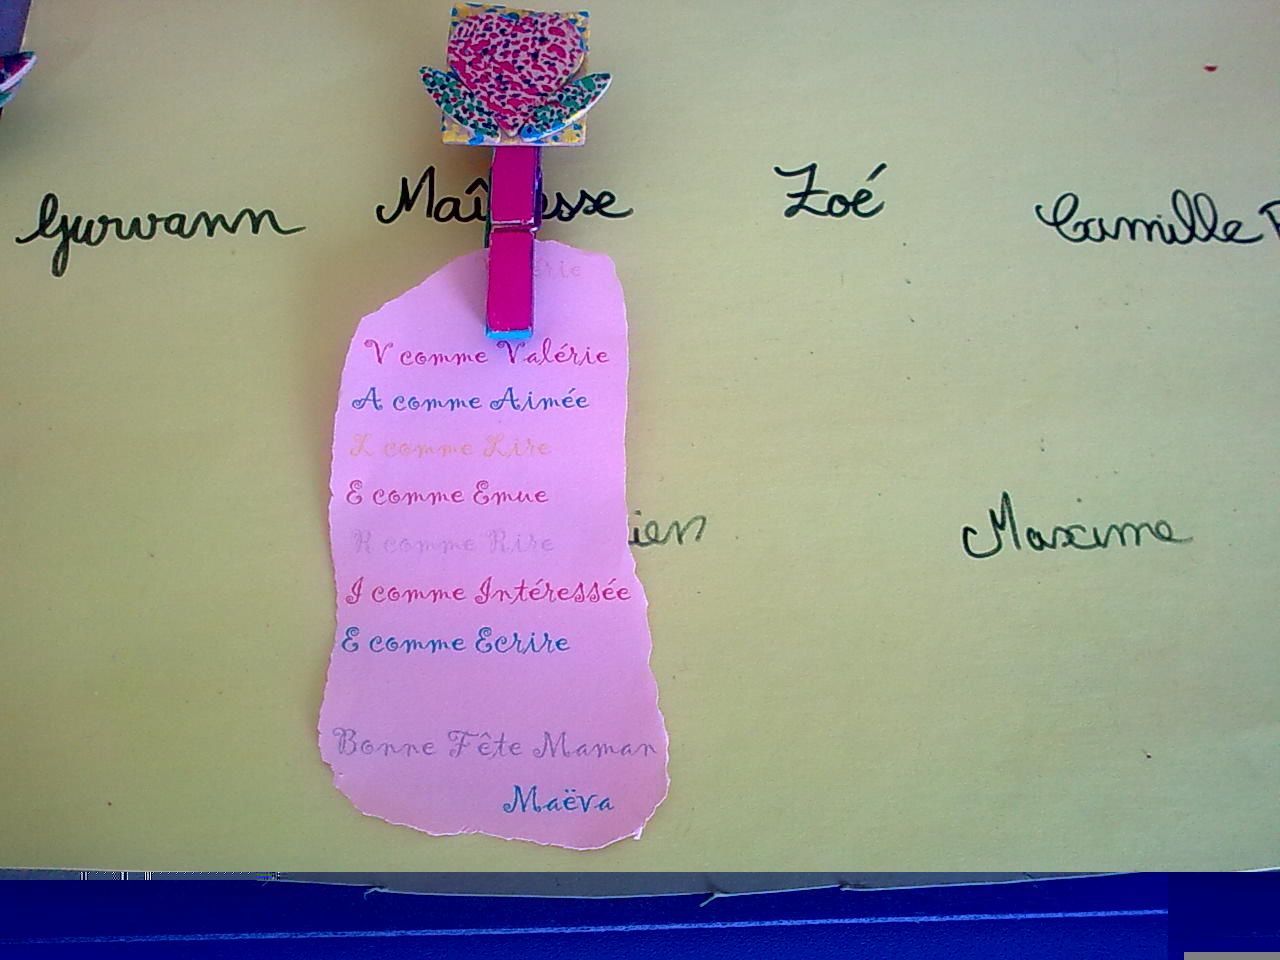 Gurvann Maîtresse Zoé Camille
V comme Valérie
A comme Aimée
L comme Lire
E comme Emue
R comme Rire
I comme Intéressée
E comme Ecrire
Maxime
Bonne Fête Maman
Maëva